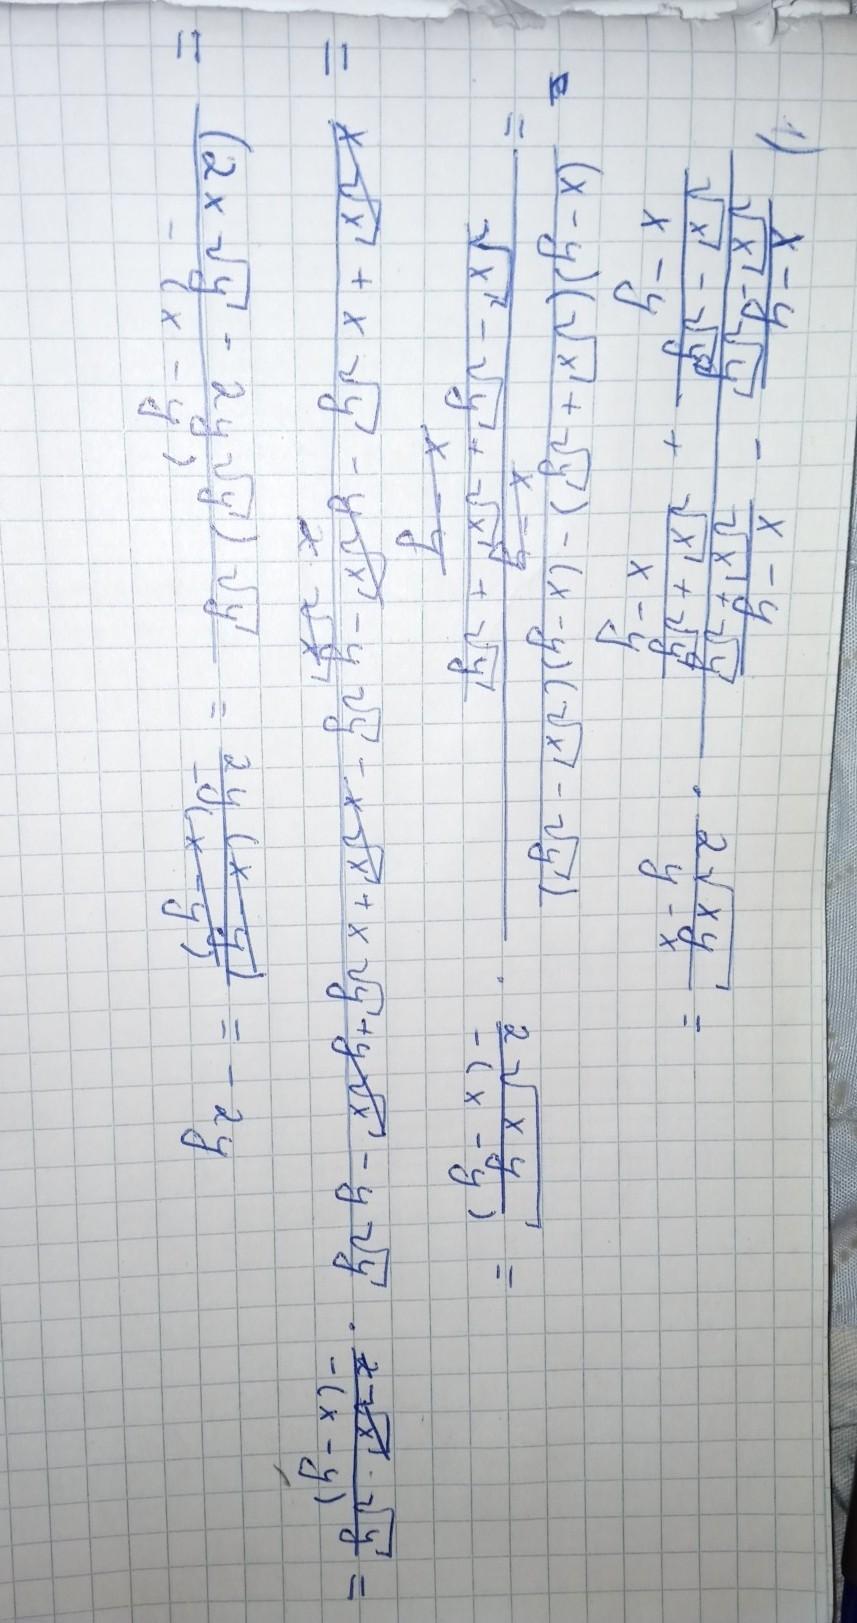 1) ((x-y)/(√x-√y) - (x-y)/(√x+√y)) / ((√x-√y)/(x-y) + (√x+√y)/(x-y)) · 2√xy/(y-x) =
= ((x-y)(√x+√y)-(x-y)(√x-√y))/(x-y) / ((√x-√y+√x+√y)/(x-y)) · 2√xy/(-(x-y)) =
= (x√x+x√y-y√x-y√y-x√x+x√y+y√x-y√y)/(2√x) · (2√x·√y)/(-(x-y)) =
= (2x√y-2y√y)√y/(-(x-y)) = 2y(x-y)/(-(x-y)) = -2y